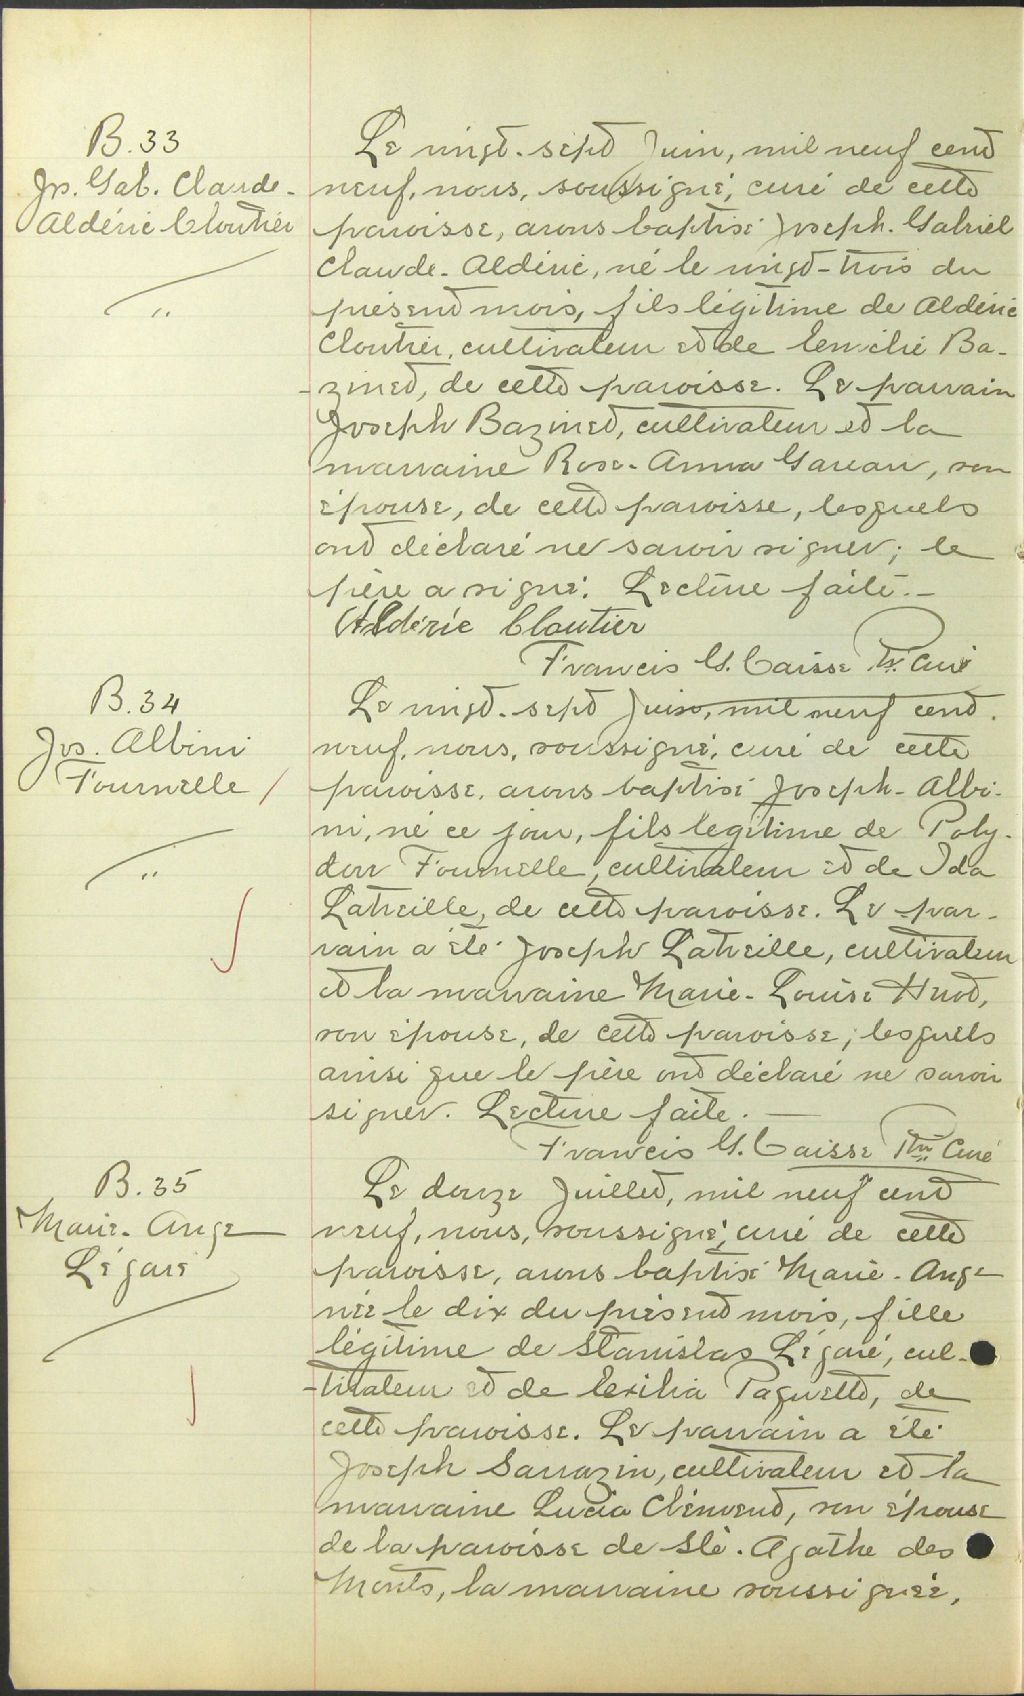 B. 33
Jos. Gab. Claude-
Aldéric Cloutier
Le vingt-sept Juin, mil neuf cent
neuf, nous, soussigné, curé de cette
paroisse, avons baptisé Joseph-Gabriel
Claude-Aldéric, né le vingt-trois du
présent mois, fils légitime de Aldéric
Cloutier, cultivateur et de Ba-
-zinet, de cette paroisse. Le parrain
Joseph Bazinet, cultivateur et la
marraine Rose-Anna Gareau, son
épouse, de cette paroisse, lesquels
ont déclaré ne savoir signer; le
père a signé. Lecture faite.-
Aldéric Cloutier
Francis G. Caisse Ptr. Curé
B. 34
Jos. Albini
Fournelle
Le vingt-sept Juin, mil neuf cent
neuf, nous, soussigné, curé de cette
paroisse, avons baptisé Joseph-Albi-
ni, né ce jour, fils légitime de Poly-
dor Fournelle, cultivateur et de Ida
Latreille, de cette paroisse. Le par-
rain a été Joseph Latreille, cultivateur
et la marraine Marie-Louise Huot,
son épouse, de cette paroisse; lesquels
ainsi que le père ont déclaré ne savoir
signer. Lecture faite.—
Francis G. Caisse Ptr Curé
B. 35
Marie-Ange
Légaré
Le douze Juillet, mil neuf cent
neuf, nous, soussigné, curé de cette
paroisse, avons baptisé Marie-Ange
née le dix du présent mois, fille
légitime de Stanislas Légaré, cul-
-tivateur et de Exilia Paquette, de
cette paroisse. Le parrain a été
Joseph Sarrazin, cultivateur et la
marraine Lucia Clément, son épouse
de la paroisse de Ste. Agathe des
Monts, la marraine soussignée,